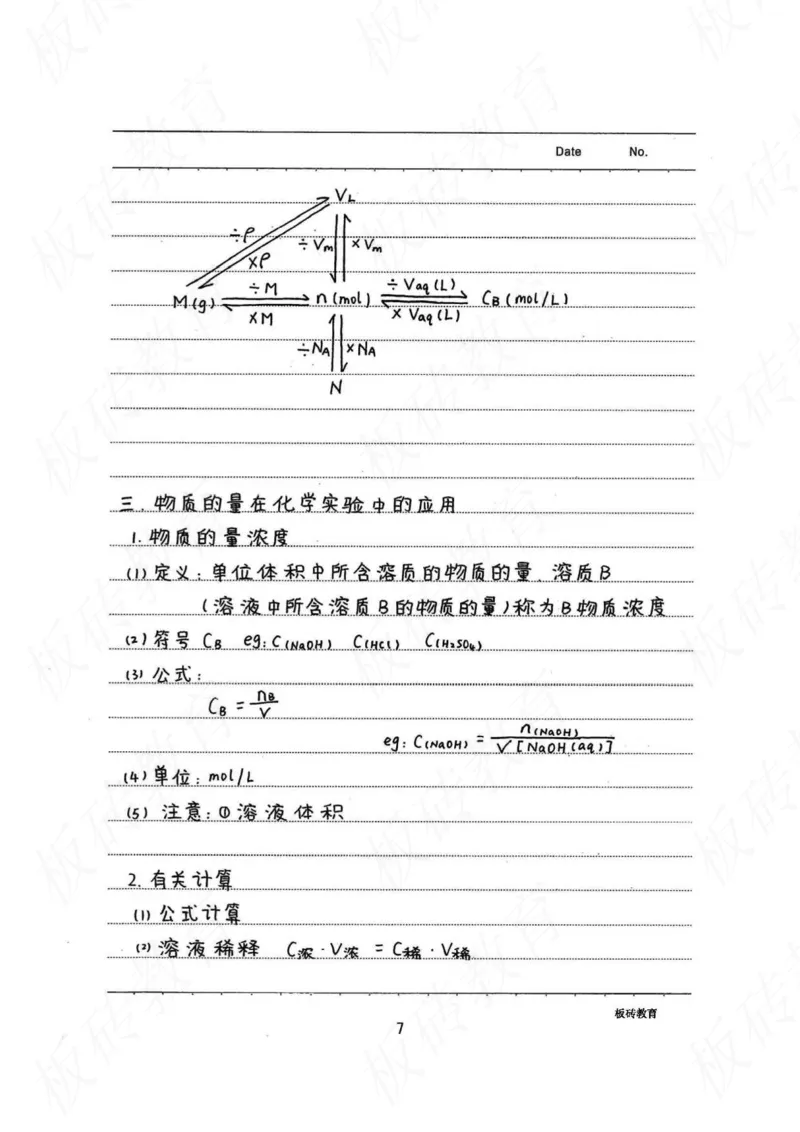 Date No.
V_L
÷ρ
×ρ
÷Vm ×Vm
M(g) ÷M ×M n(mol) ÷Vaq(L) × Vaq(L) C_B(mol/L)
÷N_A ×N_A
N
三. 物质的量在化学实验中的应用
1. 物质的量浓度
(1) 定义: 单位体积中所含溶质的物质的量. 溶质B
(溶液中所含溶质B的物质的量)称为B物质浓度
(2) 符号 C_B eg: C(NaOH) C(HCl) C(H₂SO₄)
(3) 公式:
C_B = n_B / V
eg: C(NaOH) = n(NaOH) / V[NaOH(aq)]
(4) 单位: mol/L
(5) 注意: ①溶液体积
2. 有关计算
(1) 公式计算
(2) 溶液稀释 C浓·V浓 = C稀·V稀
板砖教育
7